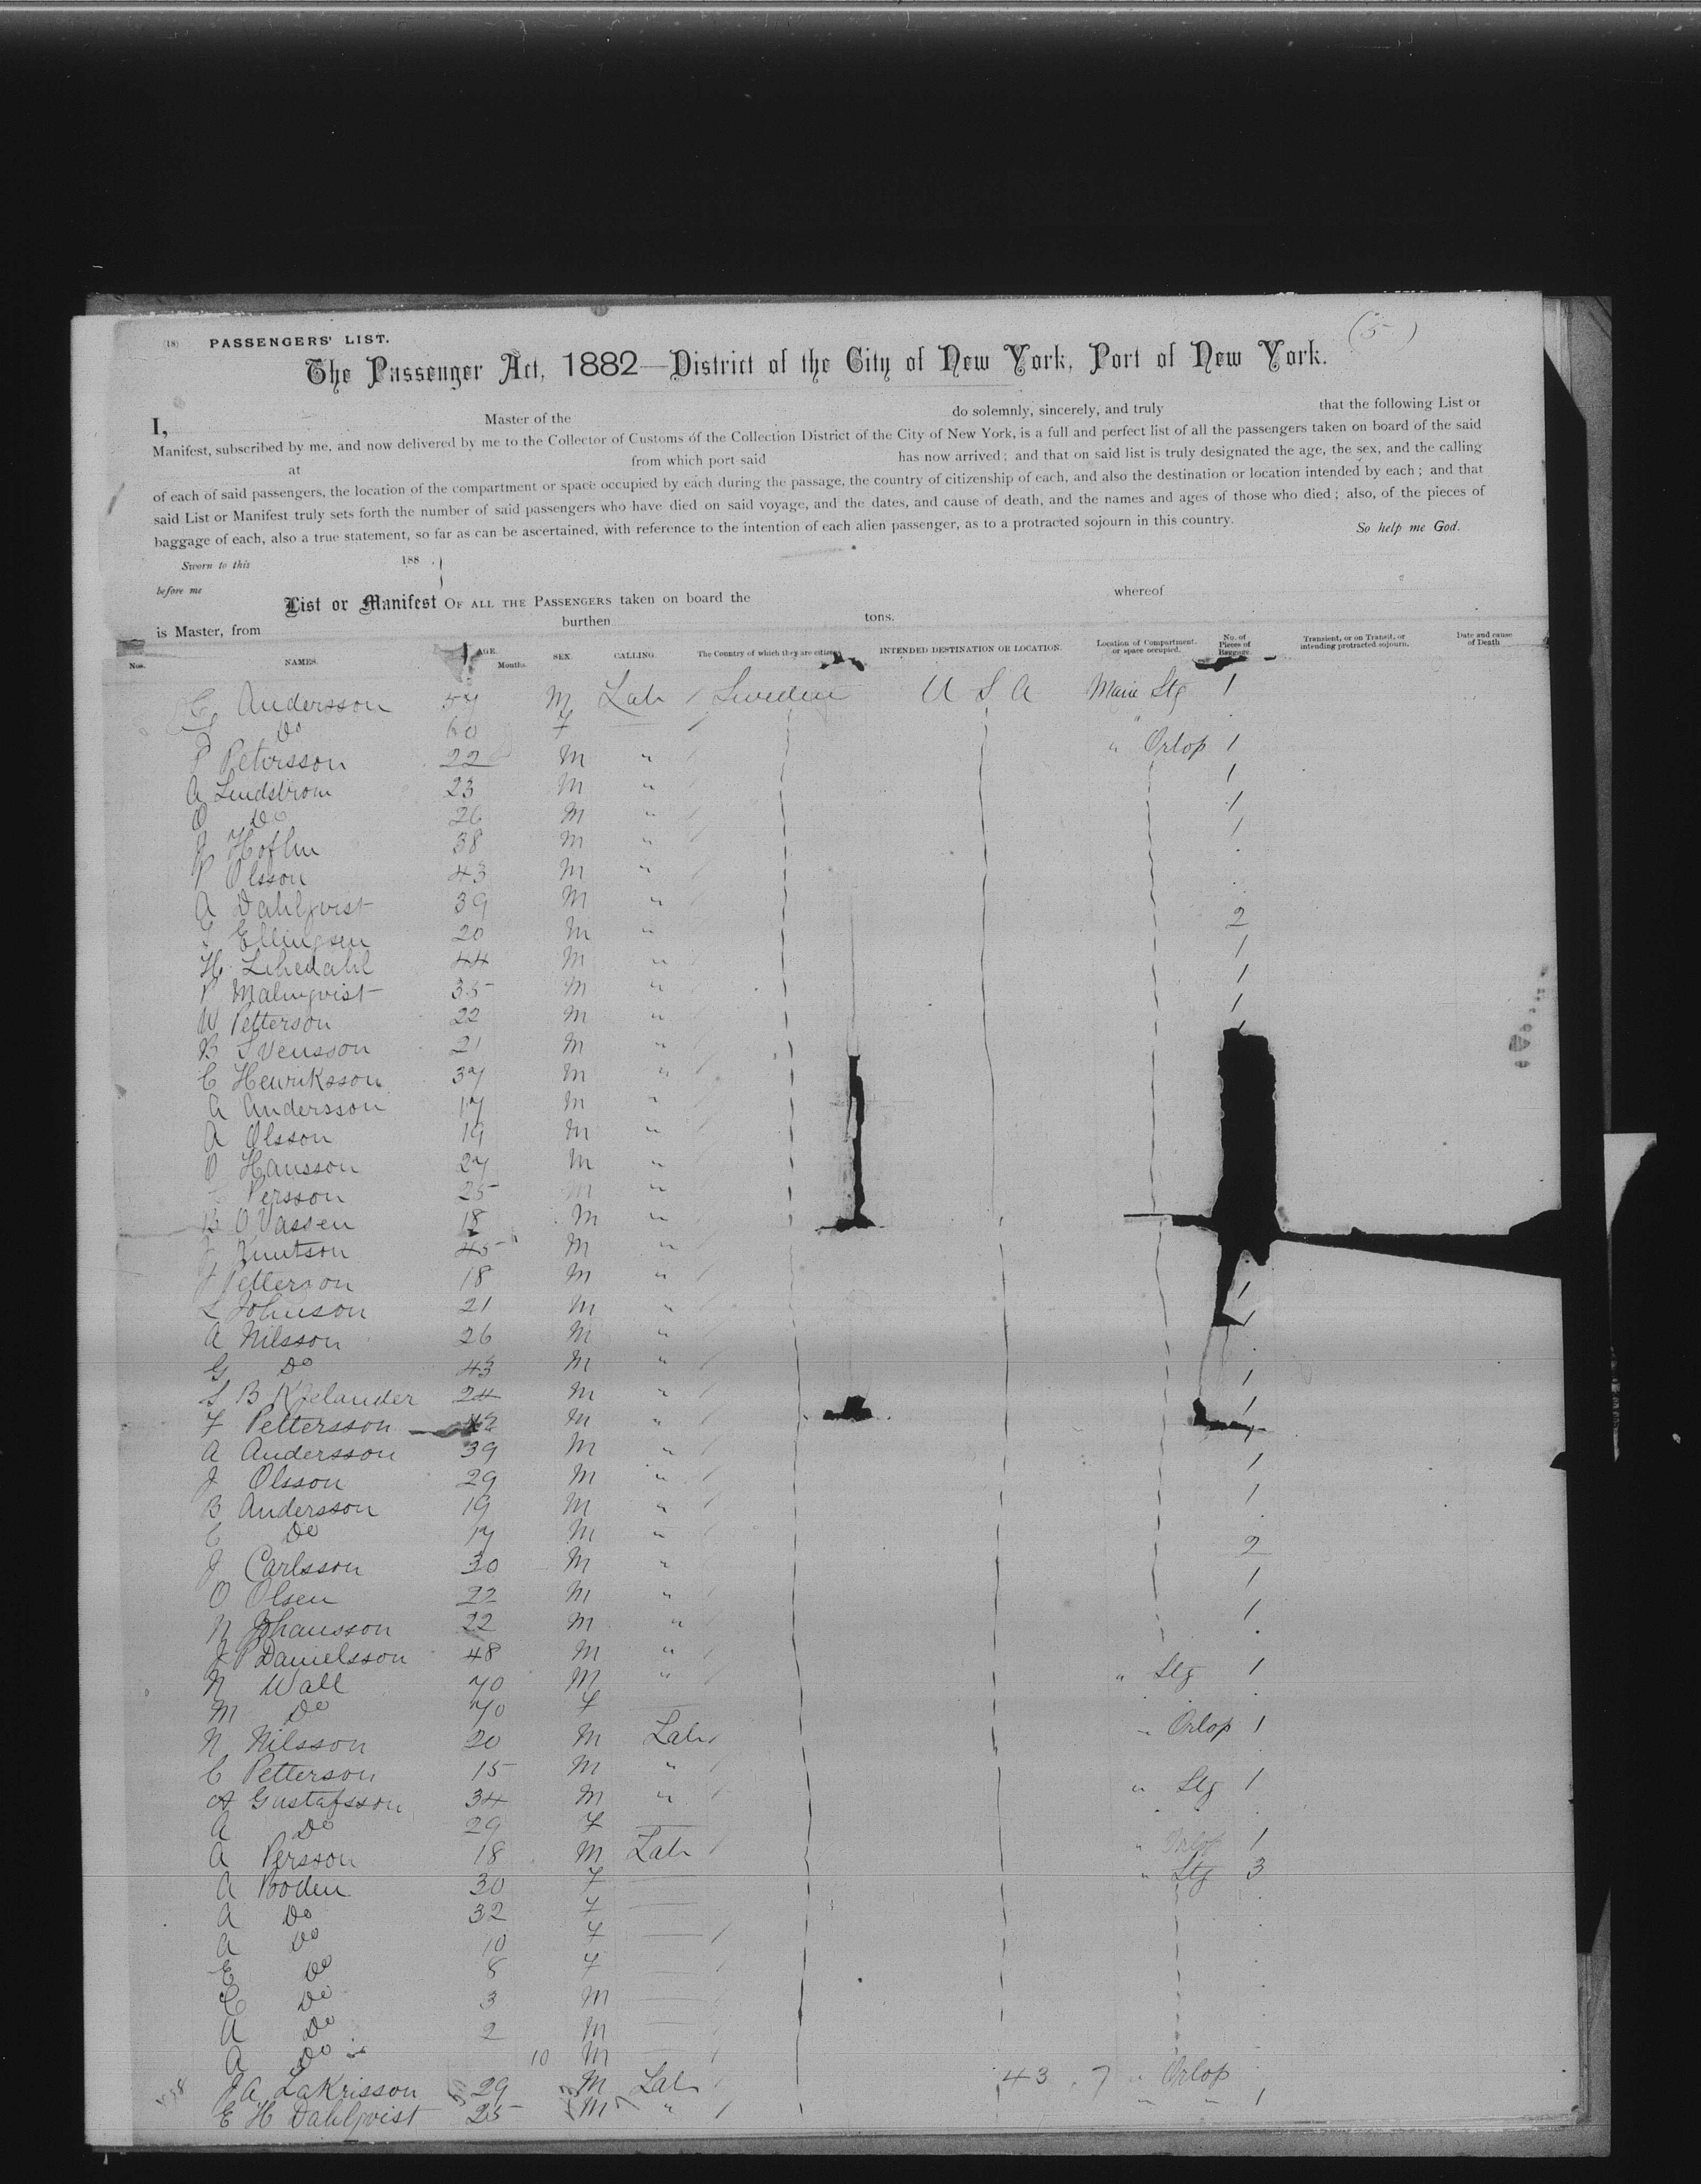 (18) PASSENGERS' LIST. (5)
The Passenger Act, 1882—District of the City of New York, Port of New York.
I, Master of the do solemnly, sincerely, and truly that the following List or
Manifest, subscribed by me, and now delivered by me to the Collector of Customs of the Collection District of the City of New York, is a full and perfect list of all the passengers taken on board of the said
at from which port said has now arrived; and that on said list is truly designated the age, the sex, and the calling
of each of said passengers, the location of the compartment or space occupied by each during the passage, the country of citizenship of each, and also the destination or location intended by each; and that
said List or Manifest truly sets forth the number of said passengers who have died on said voyage, and the dates, and cause of death, and the names and ages of those who died; also, of the pieces of
baggage of each, also a true statement, so far as can be ascertained, with reference to the intention of each alien passenger, as to a protracted sojourn in this country. So help me God.
Sworn to this 188
before me
List or Manifest OF ALL THE PASSENGERS taken on board the whereof
is Master, from burthen tons.
Nos. NAMES. AGE. Months. SEX. CALLING. The Country of which they are citizens INTENDED DESTINATION OR LOCATION. Location of Compartment, or space occupied. No. of Pieces of Baggage. Transient, or on Transit, or intending protracted sojourn. Date and cause of Death
C Andersson 57 M Lab / Sweden U S A Main Stg 1
Do 60 F — /
P Petersson 22 M " / " Orlop 1
A Lindstrom 23 M " / 1
O Do 26 M " / 1
J Hoflin 38 M " / 1
P Olsson 43 M " /
A Dahlqvist 39 M " /
Ellingsen 20 M " 2
H Lihedahl 44 M " / 1
P Malmqvist 35 M " / 1
W Petterson 22 M " 1
B Svensson 21 M " /
C Henriksson 37 M " /
A Andersson 17 M " /
A Olsson 19 M " /
O Hansson 27 M " /
Persson 25 M "
B O Vassen 18 M " /
Knutson 45 M " /
J Petterson 18 M " / 1
L Johnson 21 M " / 1
A Nilsson 26 M " /
G Do 43 M " /
S B Kjelander 24 M " / 1
F Pettersson 42 M " / 1
A Andersson 39 M " /
J Olsson 29 M " / 1
B Andersson 19 M " / 1
C Do 17 M " /
J Carlsson 30 M " / 2
O Olsen 22 M " / 1
N Johansson 22 M " 1
J P Danielsson 48 M " /
N Wall 70 M " / " Stg 1
M Do 70 F —
N Nilsson 20 M Lab / " Orlop 1
C Petterson 15 M " /
A Gustafsson 34 M " / " Stg 1
A Do 29 F —
A Persson 18 M Lab / " Orlop 1
A Boden 30 F — " Stg 3
A Do 32 F —
A Do 10 F — /
E Do 8 F — /
C Do 3 M — /
A Do 2 M — /
A Do 10 M — /
J A Lakrisson 29 M Lab / 43 . 7 " Orlop
E H Dahlqvist 25 M " / " " 1